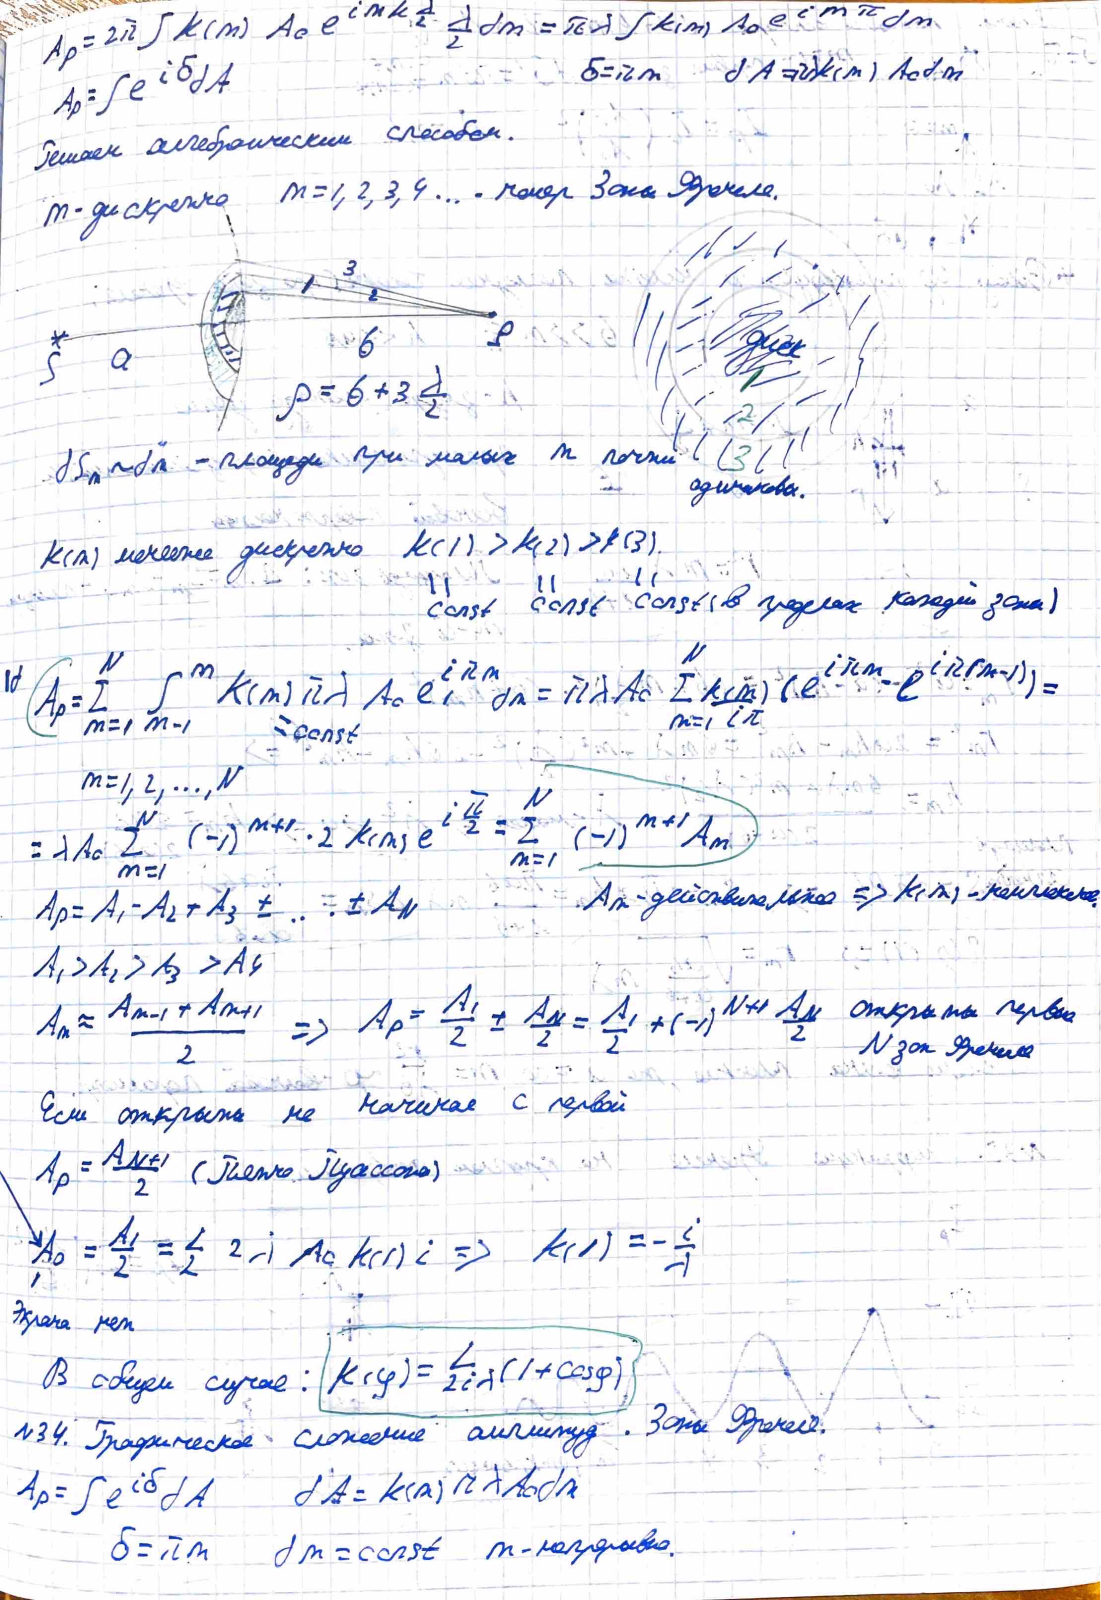 Ap = 2π ∫ K(m) A₀ e^{imk λ/2} λ/2 dm = πλ ∫ K(m) A₀ e^{imπ} dm
Ap = ∫ e^{iδ} dA δ = πm dA = πλK(m) A₀ dm
Решаем алгебраическим способом.
m - дискретно m = 1, 2, 3, 4 ... - номер Зоны Френеля.
3
1
2
S a б P
ρ = б + 3 λ/2
диск
1
2
3
dSm ~ dm - площади при малых m почти одинаковы.
K(m) меняется дискретно K(1) > K(2) > K(3).
const const const (в пределах каждой зоны)
Ap = Σ_{m=1}^{N} ∫_{m-1}^{m} K(m) πλ A₀ e^{iπm} dm = πλA₀ Σ_{m=1}^{N} K(m)/iπ (e^{iπm} - e^{iπ(m-1)}) =
= const
m = 1, 2, ..., N
= λA₀ Σ_{m=1}^{N} (-1)^{m+1} · 2 K(m) e^{i π/2} = Σ_{m=1}^{N} (-1)^{m+1} Am
Ap = A₁ - A₂ + A₃ ± ... ± A_N Am - действительное => K(m) - комплексное.
A₁ > A₂ > A₃ > A₄
Am ≈ (A_{m-1} + A_{m+1})/2 => Ap = A₁/2 ± A_N/2 = A₁/2 + (-1)^{N+1} A_N/2 открыты первые
N зон Френеля
Если открыты не начиная с первой
Ap = A_{N+1}/2 (Пятно Пуассона)
A₀ = A₁/2 = 1/2 2λ A₀ K(1) i => K(1) = - i/λ
Экрана нет
В общем случае: K(φ) = 1/2iλ (1 + cosφ)
№34. Графическое сложение амплитуд. Зоны Френеля.
Ap = ∫ e^{iδ} dA dA = K(m) πλA₀dm
δ = πm dm = const m - непрерывно.